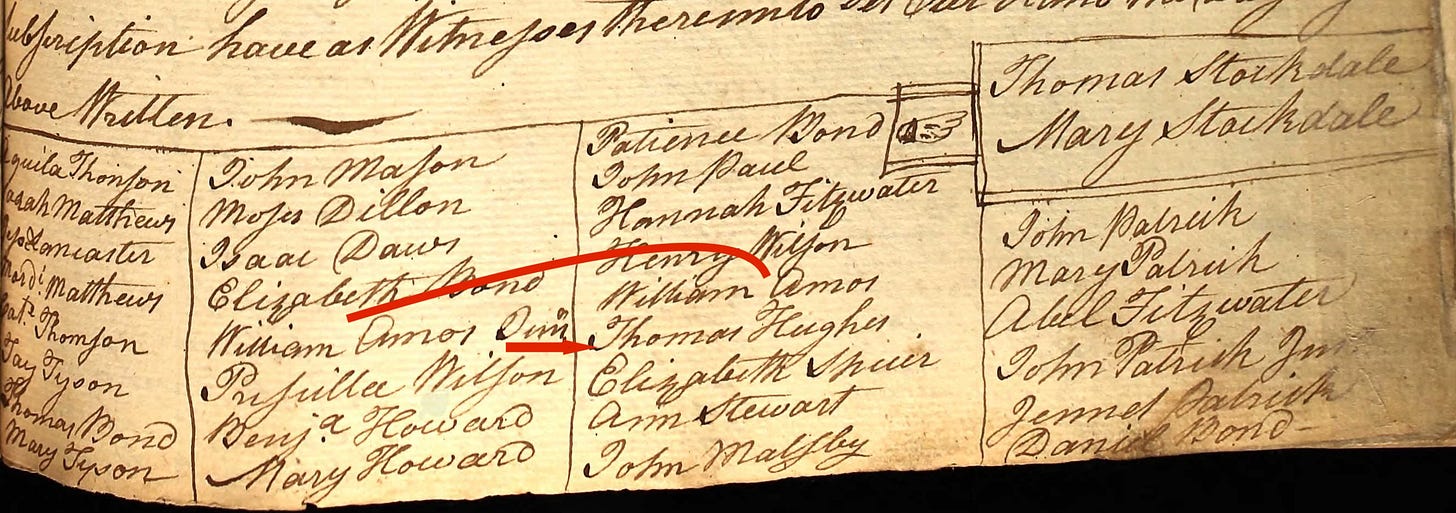 ubscription have as Witnesses thereunto set our
above Written.
Thomas Stockdale
Mary Stockdale
quila Thonson
arah Matthews
Lancaster
Mord. Matthews
Thomson
Jay Tyson
Thomas Bond
Mary Tyson
John Mason
Moses Dillon
Isaac Daws
Elizabeth Bond
William Amos Junr
Prisilla Wilson
Benja Howard
Mary Howard
Patience Bond
John Paul
Hannah Fitzwater
Henry Wilson
William Amos
Thomas Hughes
Elizabeth Spuir
Ann Stewart
John Malsby
John Patrick
Mary Patrick
Abel Fitzwater
John Patrick Jun
Jennet Patrick
Daniel Bond